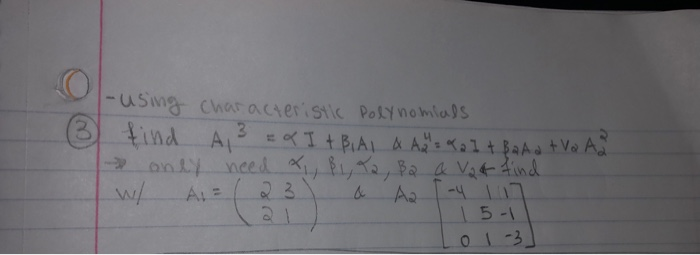 -using characteristic Polynomials
③ find A₁³ = αI + β₁A₁ & A₂⁴ = α₂I + β₂A₂ + V₂A₂²
→ only need α₁, β₁, α₂, β₂ & V₂ ← find
w/ A₁ = (2 3 & A₂ [-4 1 1]
2 1) 1 5 -1
0 1 -3]